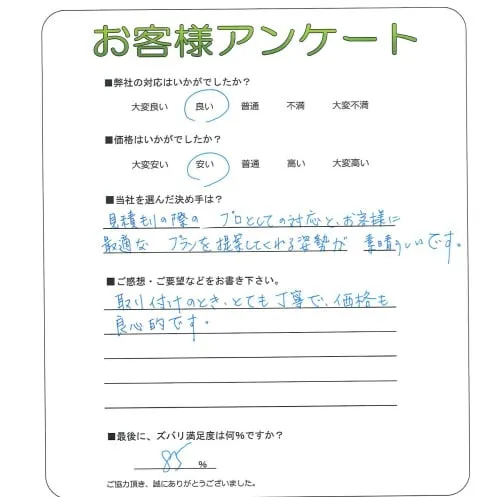 お客様アンケート
■弊社の対応はいかがでしたか？
大変良い 良い 普通 不満 大変不満
■価格はいかがでしたか？
大変安い 安い 普通 高い 大変高い
■当社を選んだ決め手は？
見積もりの際の プロとしての対応と、お客様に
最適な プランを提案してくれる姿勢が 素晴らしいです。
■ご感想・ご要望などをお書き下さい。
取り付けのとき、とても丁寧で、価格も
良心的です。
■最後に、ズバリ満足度は何％ですか？
85 ％
ご協力頂き、誠にありがとうございました。